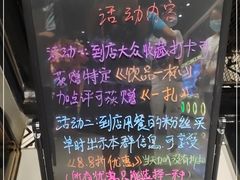 活动内容
活动一：到店大众收藏打卡可
获赠特定《饮品一杯》
加点评可获赠《一扎》
活动二：到店用餐的粉丝买
单时出示本群信息可享受
《8.8折优惠》